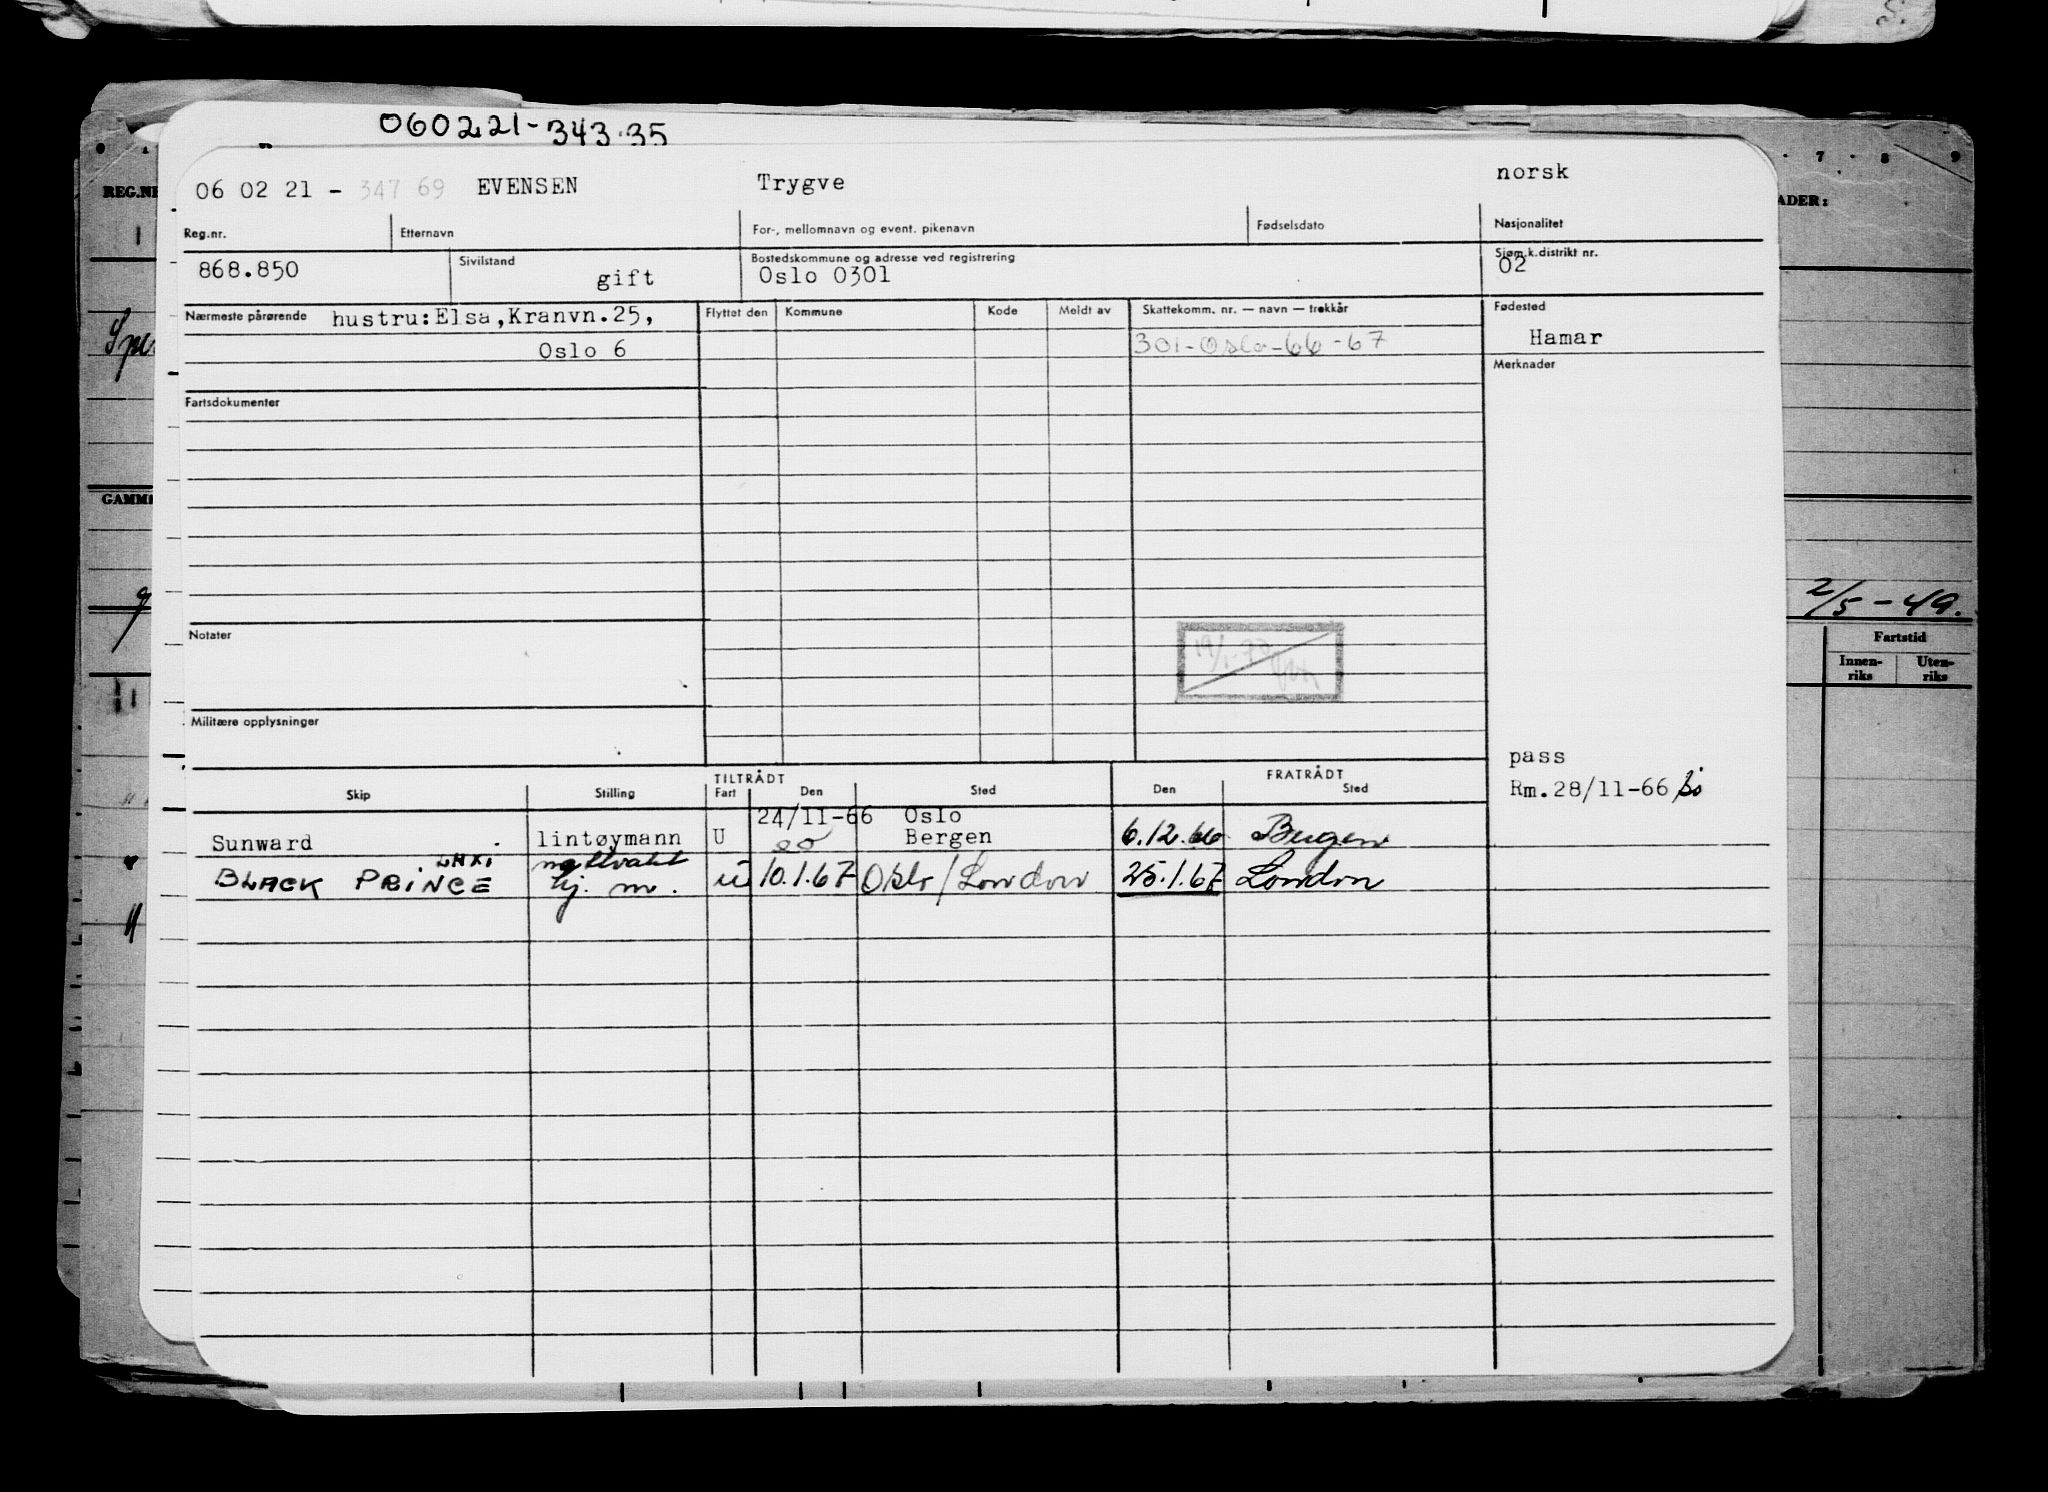 060221-343.35
06 02 21 - 347 69 EVENSEN Trygve norsk
Reg.nr. Etternavn For-, mellomnavn og event. pikenavn Fødselsdato Nasjonalitet
868.850 Sivilstand gift Bostedskommune og adresse ved registrering Oslo 0301 Sjøm.k.distrikt nr. 02
Nærmeste pårørende hustru:Elsa,Kranvn.25, Flyttet den Kommune Kode Meldt av Skattekomm. nr. — navn — trekkår Fødested
Oslo 6 301-Oslo-66-67 Hamar
Merknader
Fartsdokumenter
Notater
19/1-70
Militære opplysninger
pass
Rm.28/11-66
TILTRÅDT FRATRÅDT
Skip Stilling Fart Den Sted Den Sted
24/11-66 Oslo
Sunward lintøymann U Bergen 6.12.66 Bergen
BLACK PRINCE hj. m. u 10.1.67 Oslo/London 25.1.67 London
REG.NR
GAMM
7 8 9
ADER:
2/5-49.
Fartstid
Innen-riks Uten-riks